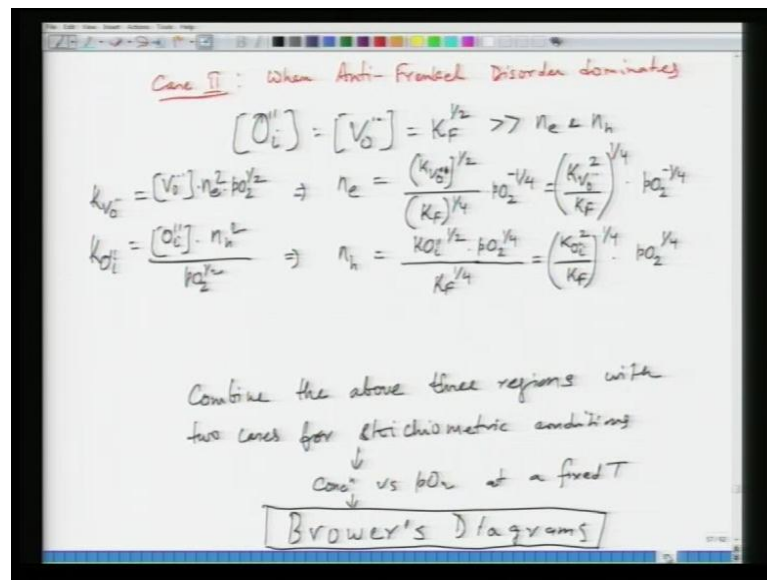 Case II : When Anti-Frenkel Disorder dominates
[O_i''] = [V_o^{..}] = K_F^{1/2} >> n_e & n_h
K_{V_o^{..}} = [V_o^{..}]·n_e^2·pO_2^{1/2} ⇒ n_e = (K_{V_o^{..}})^{1/2} / (K_F)^{1/4} pO_2^{-1/4} = (K_{V_o^{..}}^2 / K_F)^{1/4} · pO_2^{-1/4}
K_{O_i''} = [O_i'']·n_h^2 / pO_2^{1/2} ⇒ n_h = K_{Oi}^{1/2}·pO_2^{1/4} / K_F^{1/4} = (K_{Oi}^2 / K_F)^{1/4} · pO_2^{1/4}
Combine the above three regions with
two cases for stoichiometric conditions
↓
Concⁿ vs pO_2 at a fixed T
↓
Brower's Diagrams